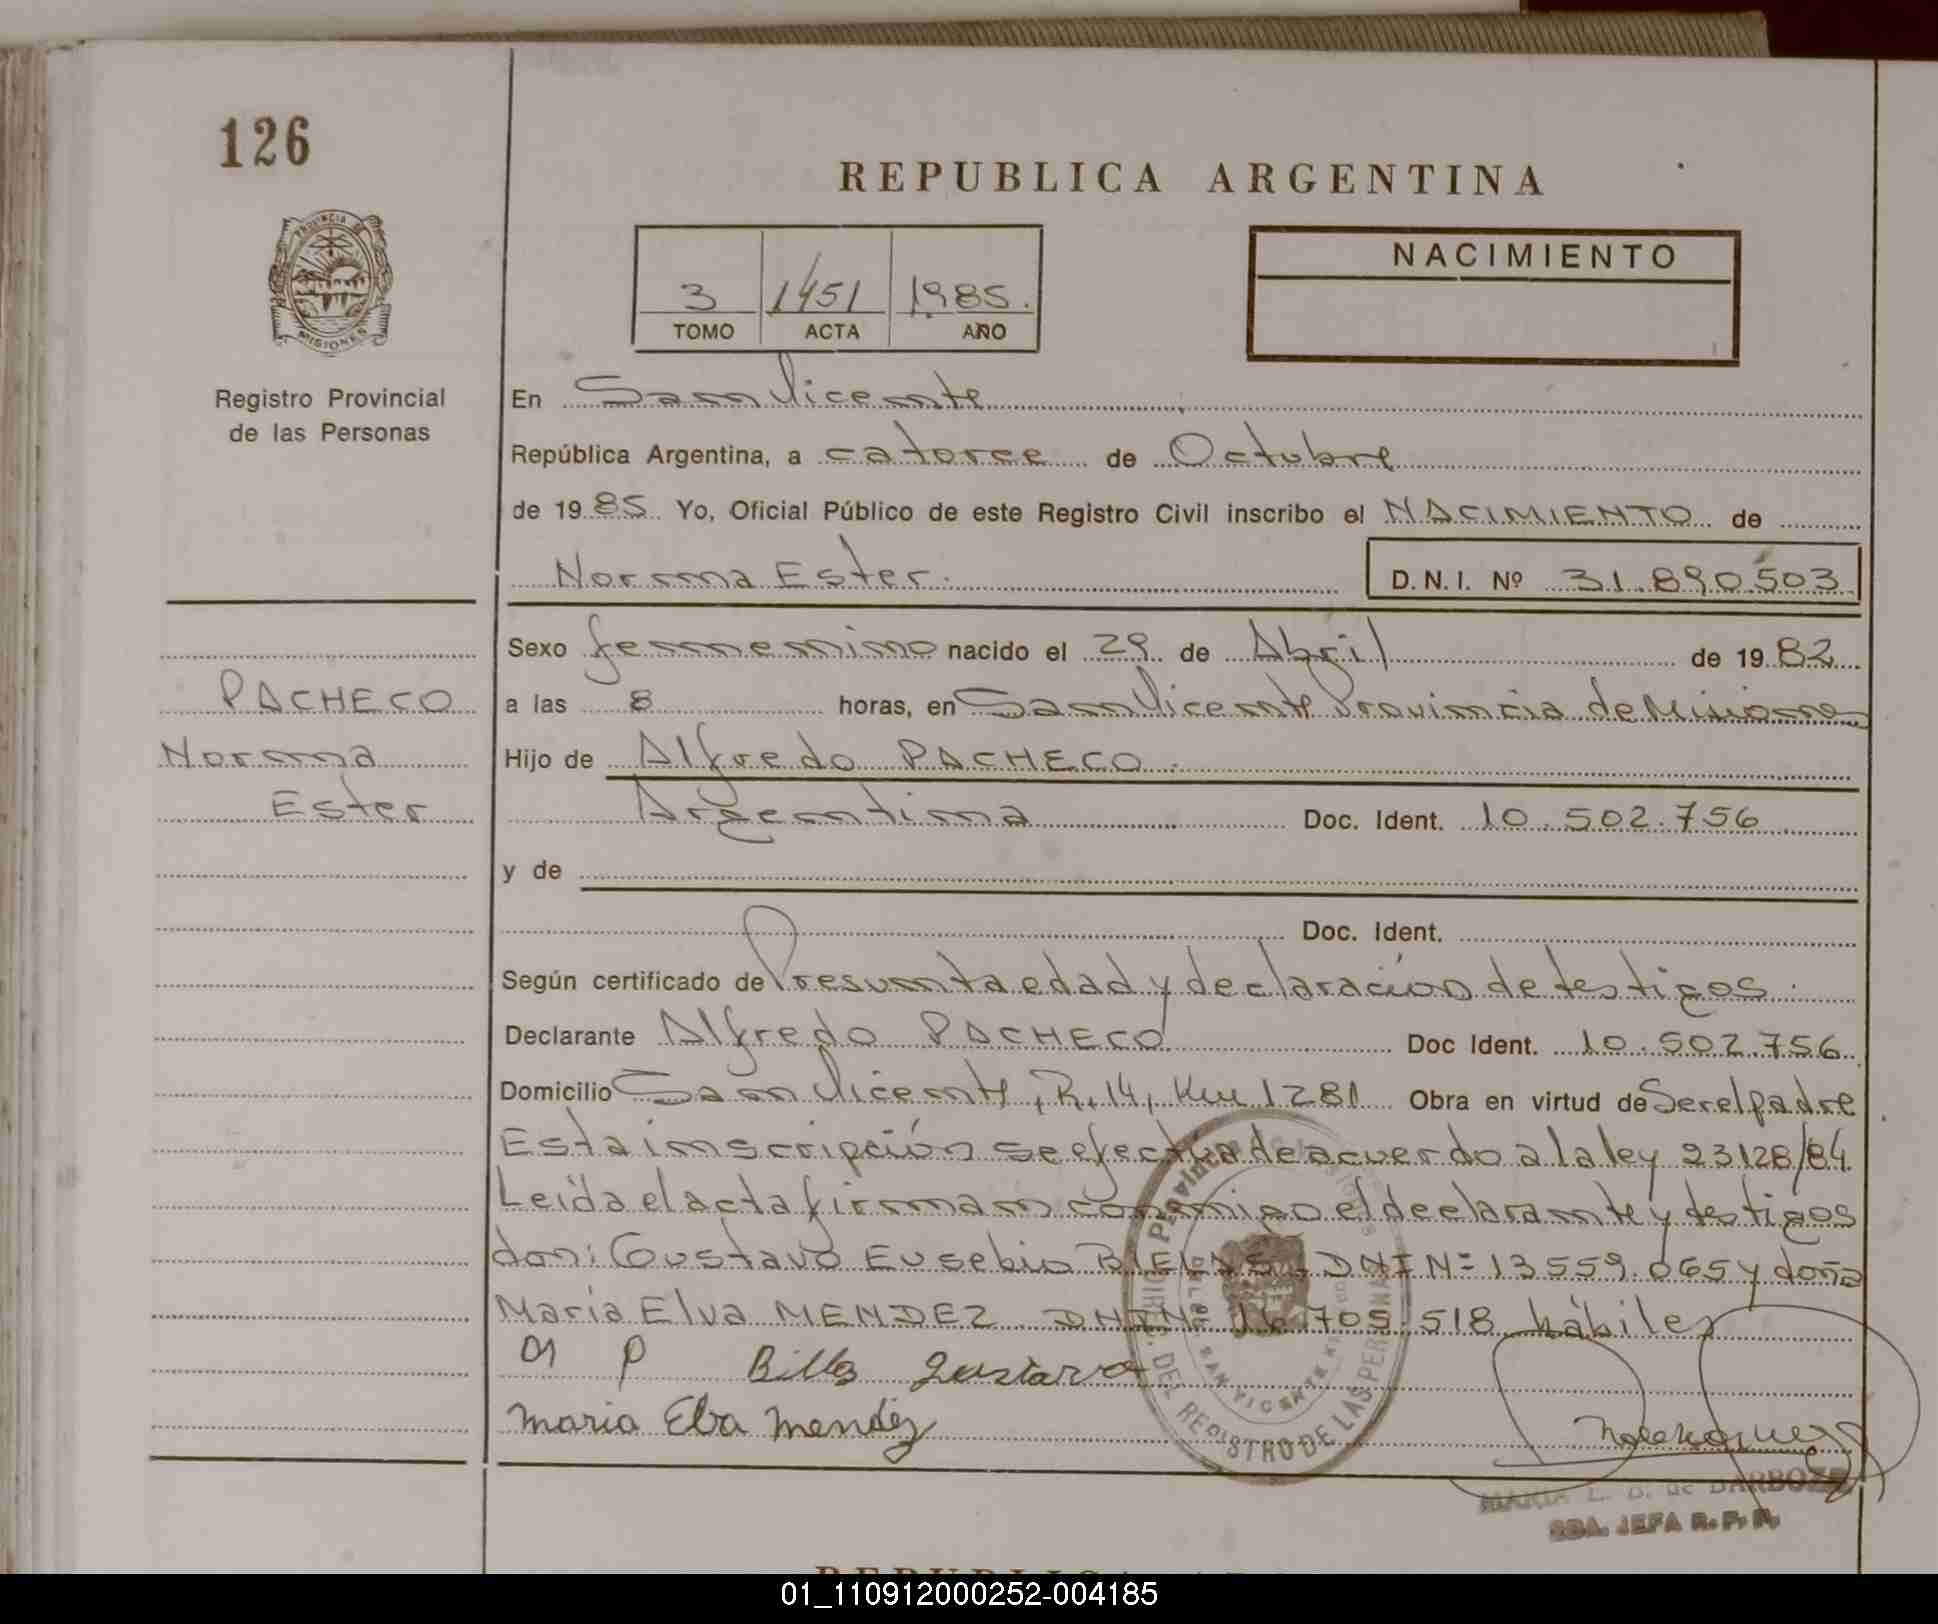 126
REPUBLICA ARGENTINA
PROVINCIA DE
MISIONES
3 1451 1985.
TOMO ACTA AÑO
NACIMIENTO
Registro Provincial
de las Personas
En San Vicente
República Argentina, a catorce de Octubre
de 1985 Yo, Oficial Público de este Registro Civil inscribo el NACIMIENTO de
Norma Ester. D.N.I. Nº 31.890.503
Sexo femenino nacido el 29 de Abril de 1982
PACHECO
Norma
Ester
a las 8 horas, en San Vicente Provincia de Misiones
Hijo de Alfredo PACHECO.
Argentina Doc. Ident. 10.502.756
y de
Doc. Ident.
Según certificado de Presunta edad y declaración de testigos.
Declarante Alfredo PACHECO Doc Ident. 10.502.756
Domicilio San Vicente, R. 14, Km 1281 Obra en virtud de Ser el padre
Esta inscripción se efectúa de acuerdo a la ley 23128/84
Leída el acta firman conmigo el declarante y testigos
don: Gustavo Eusebio DNI Nº 13559.065 y doña
María Elva MENDEZ DNI Nº 16.705.518 hábiles
A P Gustavo
Maria Elva Mendez
PROVINCIAL DEL REGISTRO DE LAS PERSONAS
SAN VICENTE
MARIA L. B. de BARBOZA
SDA. JEFA R. P. P.
01_110912000252-004185